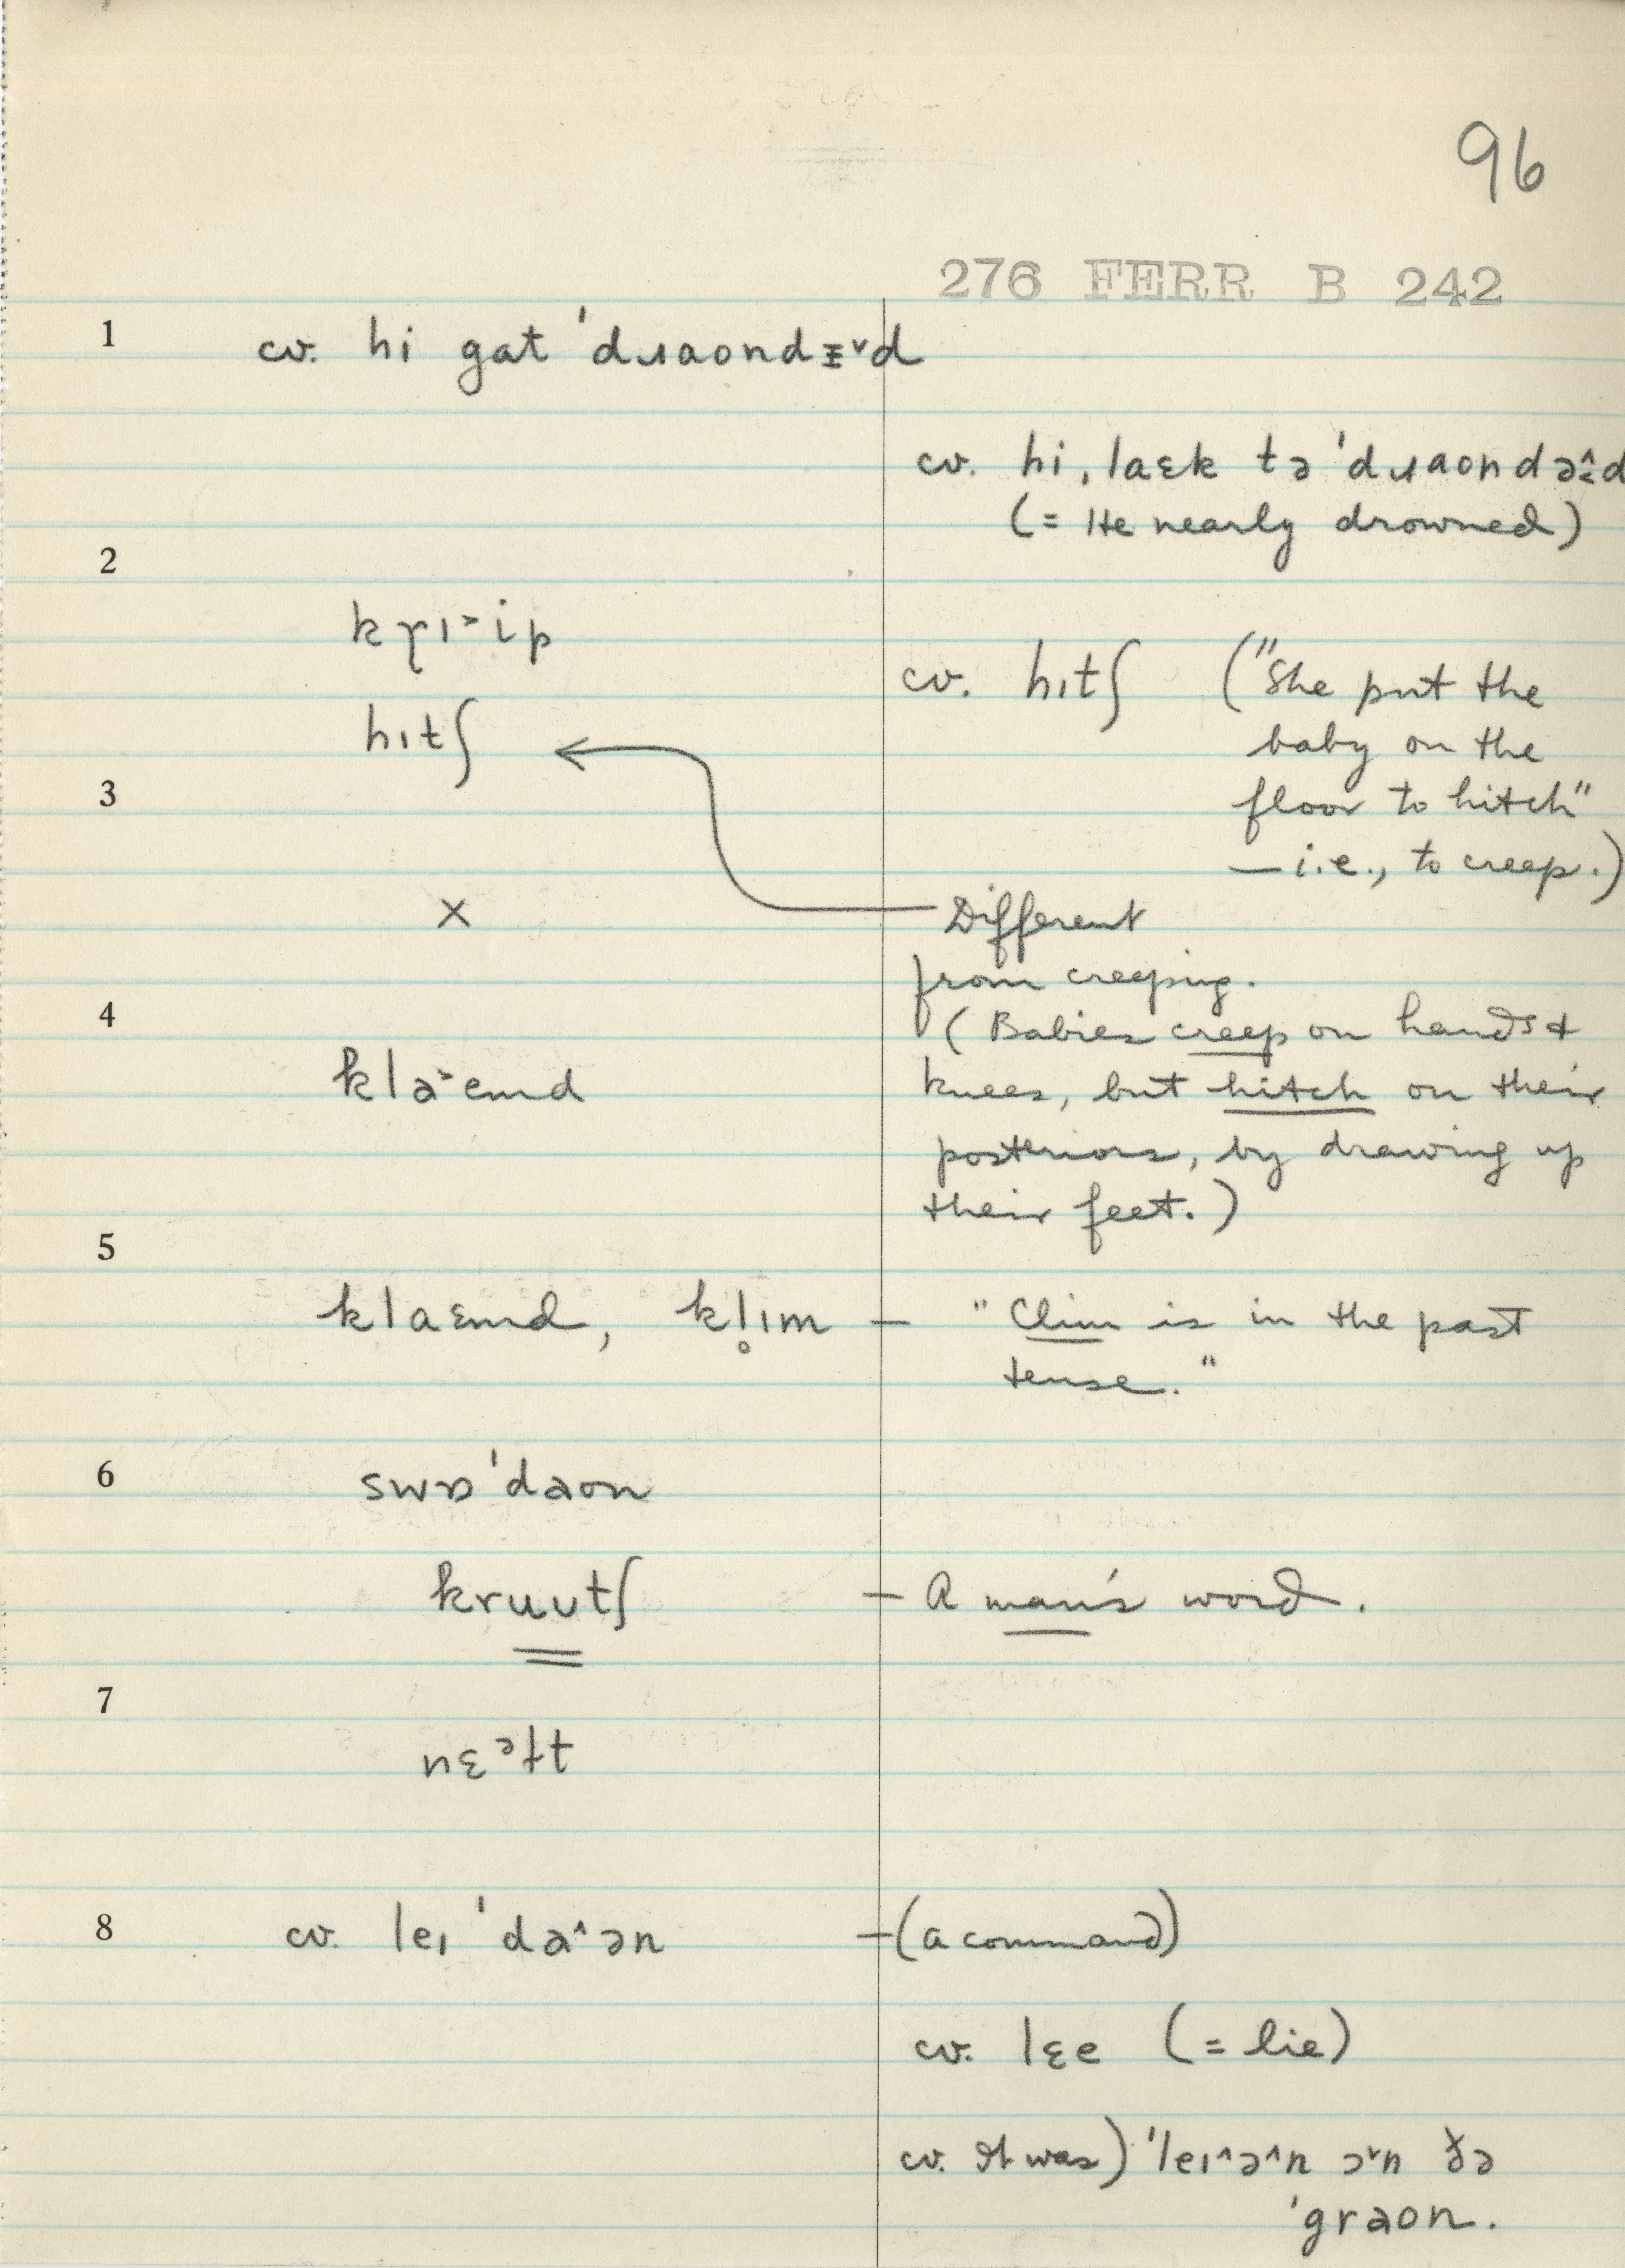 96
276 FERR B 242
1 cv. hi gat ˈdɹaondɪ̵˅d
cv. hi, laɛk tə ˈdɹaondə̂d
(= He nearly drowned)
2
kɼɪ˃ip
cv. hɪtʃ ("She put the
hɪtʃ
baby on the
3 floor to hitch"
— i.e., to creep.)
x — Different
from creeping.
4 (Babies creep on hands &
kla˃emd knees, but hitch on their
posteriors, by drawing up
their feet.)
5
klaɛmd, kl̥ɪm — "Clim is in the past
tense."
6 swɒˈdaon
kruʊtʃ — A man's word.
7
nɛᵊɫt
8 cv. leɪ ˈda˄ən — (a command)
cv. lɛe (= lie)
cv. It was) ˈleɪ˄ə˄n ɔ˅n ðə
ˈgraon.